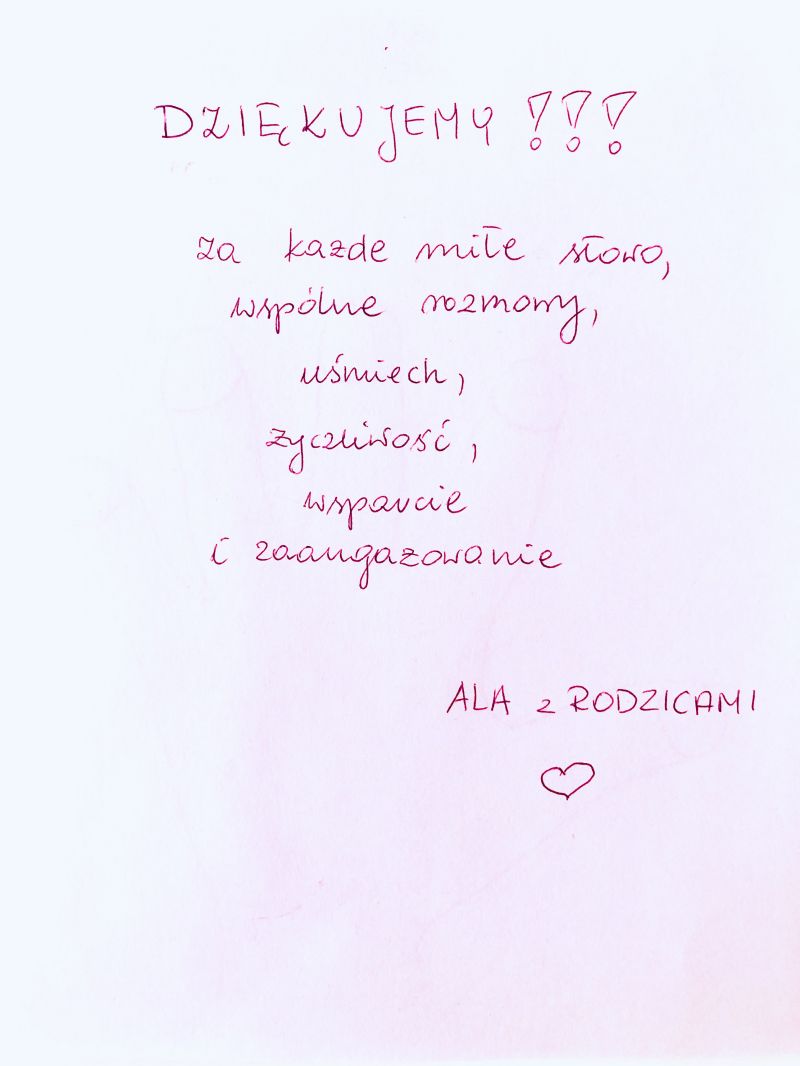 DZIĘKUJEMY !!!
za każde miłe słowo,
wspólne rozmowy,
uśmiech,
życzliwość,
wsparcie
i zaangażowanie
ALA z RODZICAMI